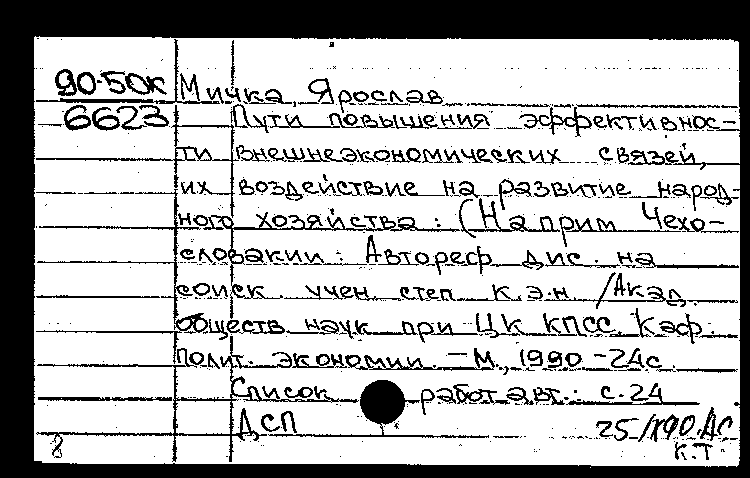 90-50к Мичка, Ярослав
6623 Пути повышения эффективнос-
ти внешнеэкономических связей,
их воздействие на развитие народ-
ного хозяйства: (На прим Чехо-
словакии: Автореф дис. на
соиск. учен степ к.э.н /Акад.
обществ. наук при ЦК КПСС. Каф.
полит. экономии. - М., 1990 - 24с.
Список работ авт.: с. 24
ДСП 25/190.ДС
8 К.Т.